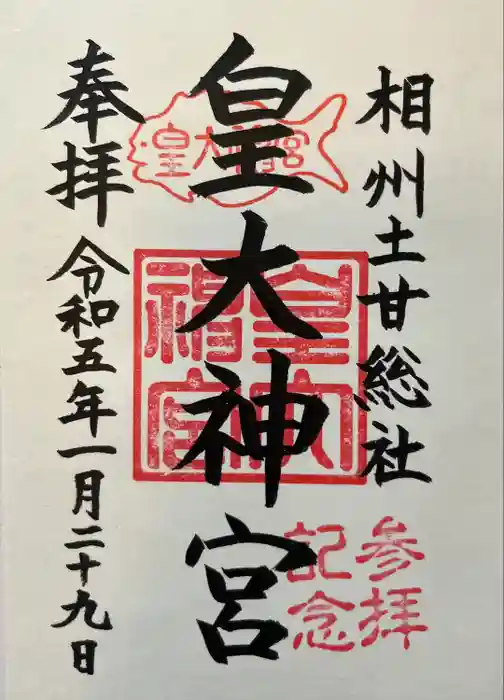 相州土甘総社
皇大神宮
皇大神宮
皇大神宮
参拝
記念
奉拝
令和五年一月二十九日